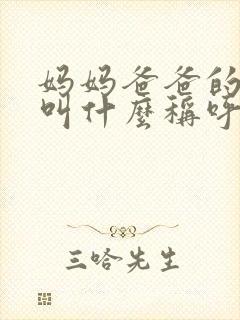 妈妈爸爸的
叫什麼稱呼
三哈先生